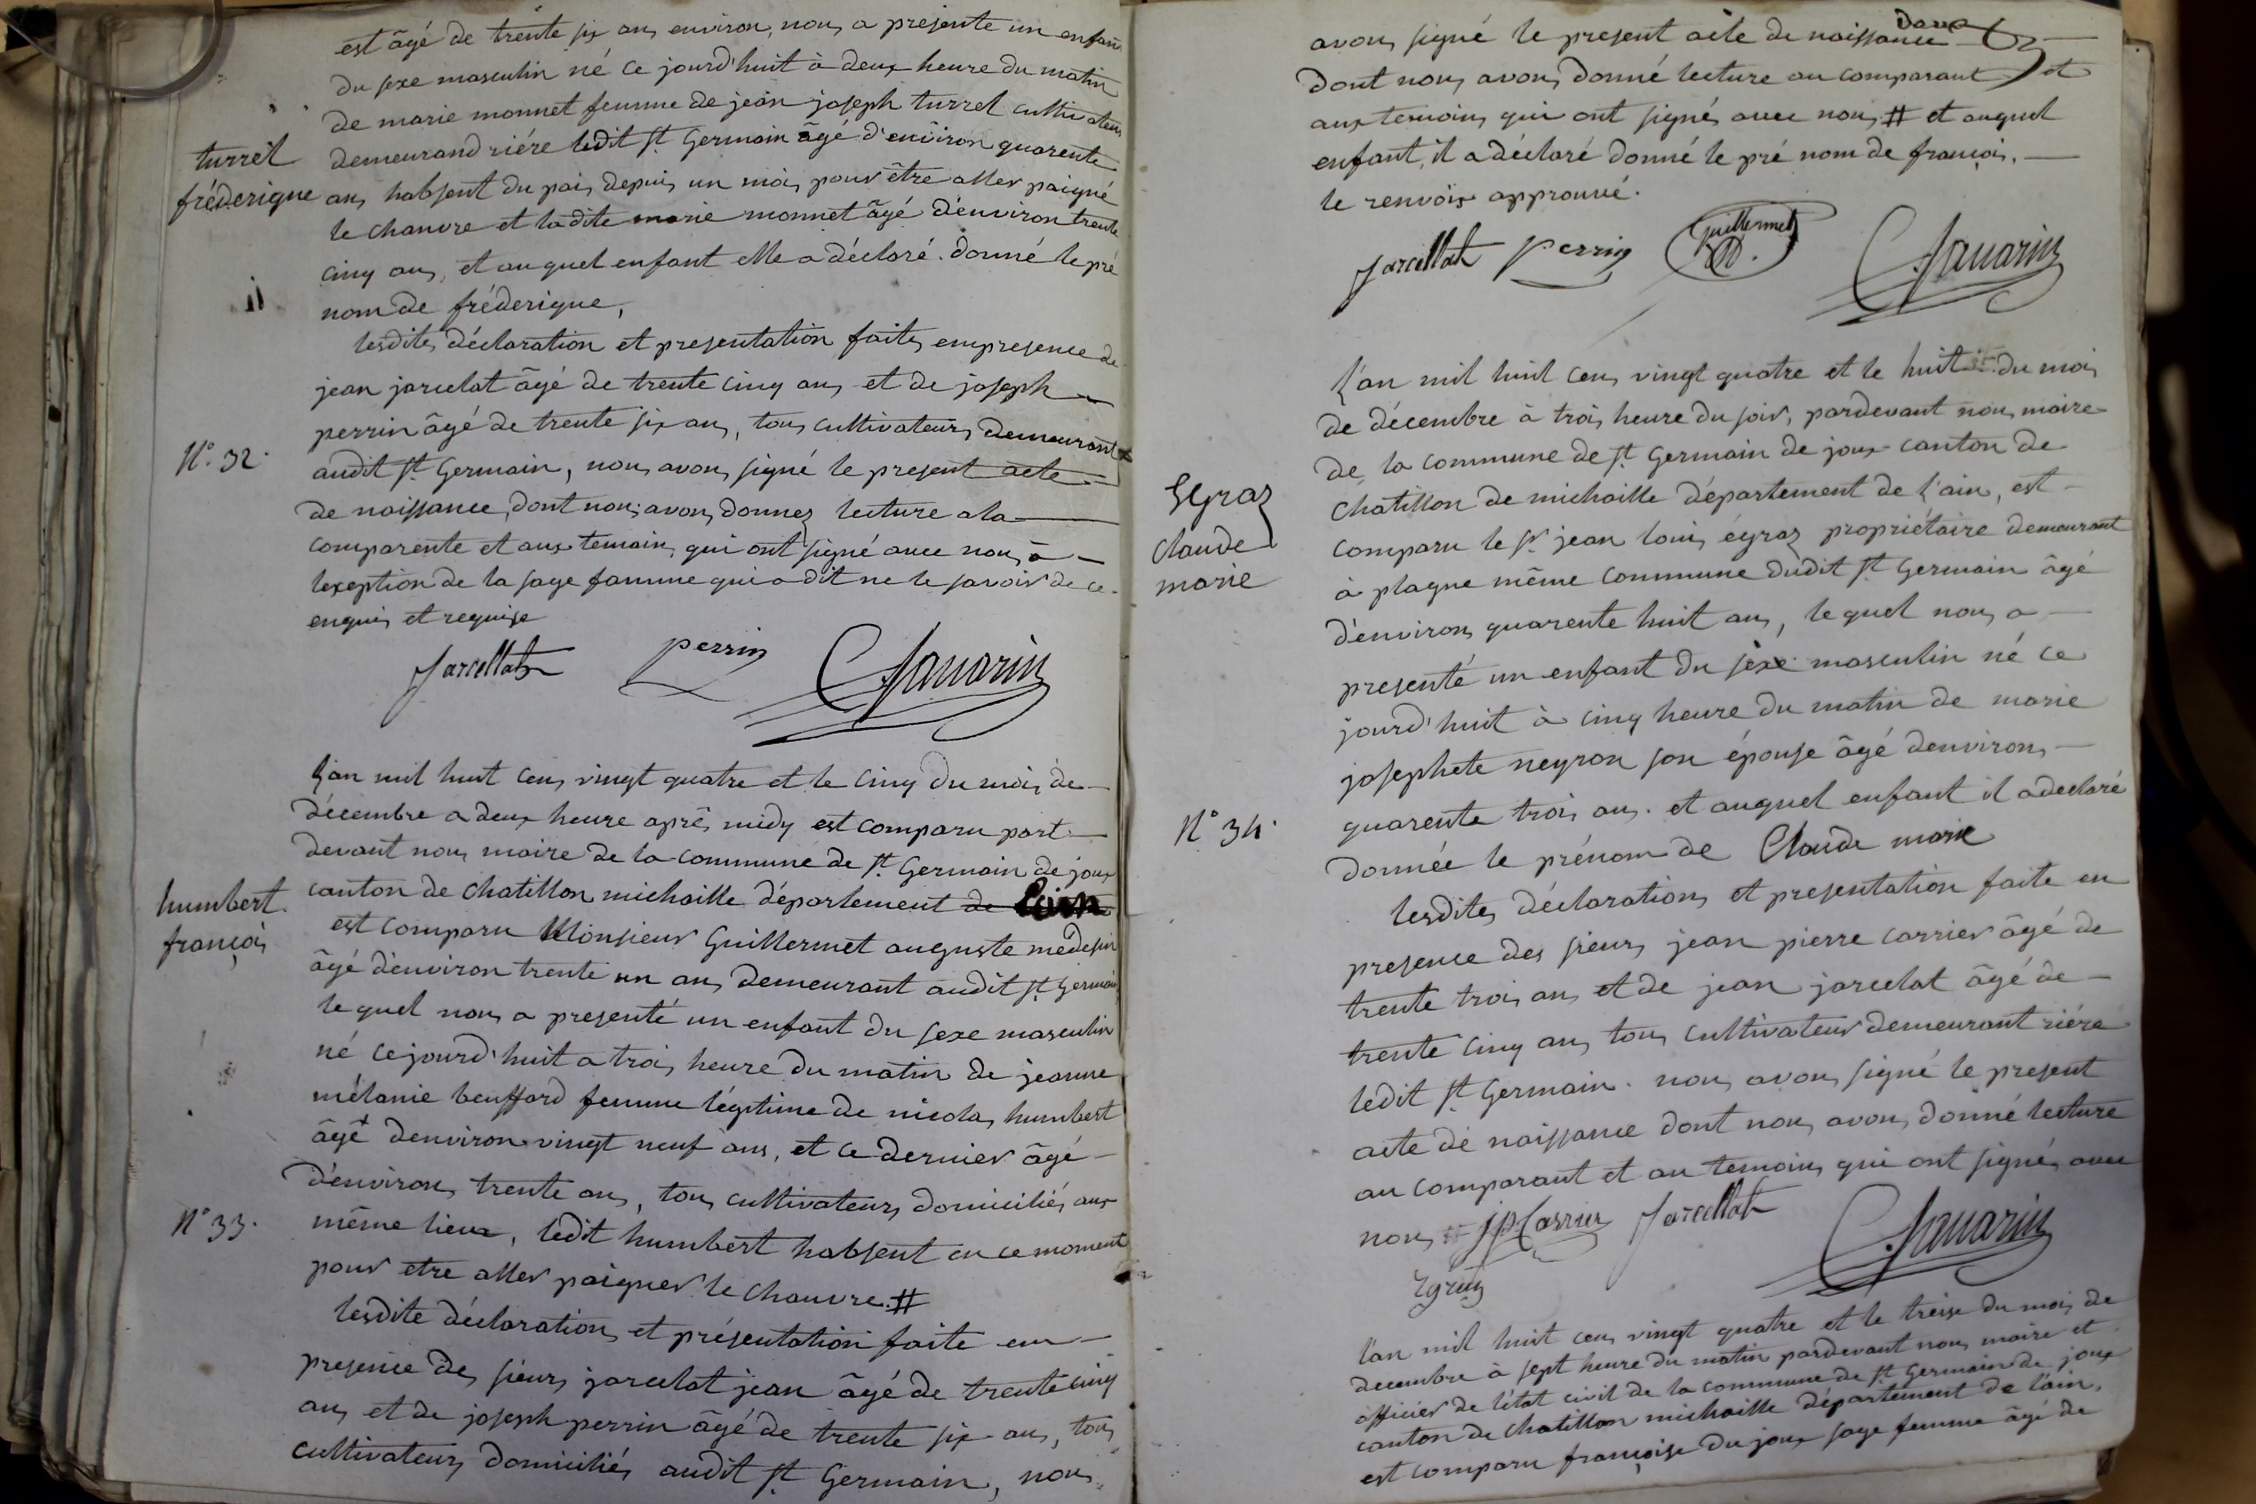 est âgé de trente six ans environ, nous a presente un enfant
du sexe masculin né ce jourd'huit à deux heure du matin
de marie monnet femme de jean joseph turrel cultivateur
demeurand riére ledit St Germain âgé d'environ quarente
turrel
fréderique
ans habsent du pais depuis un mois pour être aller paigné
le chanvre et ladite marie monnet âgé d'environ trente
cinq ans, et auquel enfant elle a déclaré donné le pré
nom de fréderique,
lesdites déclaration et presentation faites en presence de
jean jarcelat âgé de trente cinq ans et de joseph
perrin âgé de trente six ans, tous cultivateurs demeurant
N° 32.
audit St Germain, nous avons signé le present acte
de naissance, dont nous avons donnez lecture a la
comparente et aux temoins qui ont signé avec nous à
lexeption de la sage famme qui a dit ne le savoir de ce
enquis et requise
Jarcellat perrin Savarin
L'an mil huit cens vingt quatre et le cinq du mois de
décembre a deux heure aprés midy est comparu part
devant nous maire de la commune de St Germain de joux
canton de chatillon michaille département de l'ain
humbert
françois
est comparu Monsieur Guillermet auguste médesin
âgé d'environ trente un ans demeurant audit St Germain
le quel nous a presenté un enfant du sexe masculin
né ce jourd'huit a trois heure du matin de jeanne
mélanie beufford femme légitime de nicolas humbert
âgé d'environ vingt neuf ans, et ce dernier âgé
d'environs trente ans, tous cultivateurs domiciliés aux
N° 33.
même lieux, ledit humbert habsent en ce moment
pour etre aller paigner le chanvre. #
lesdite déclarations et présentation faite en
presence des sieurs jarcelat jean âgé de trente cinq
ans et de joseph perrin âgé de trente six ans, tous
cultivateurs domiciliés audit St Germain, nous
avons signé le present acte de naissance
dont nous avons donné lecture au comparant et
aux temoins qui ont signés avec nous # et auquel
enfant, il a déclaré donné le pré nom de françois.
le renvois approuvé.
Jarcellat perrin Guillermet Savarin
L'an mil huit cens vingt quatre et le huit du mois
de décembre à trois heure du soir, pardevant nous maire
de la commune de St Germain de joux canton de
chatillon de michaille département de l'ain, est
Egraz
claude
marie
comparu le Sr jean louis égraz propriétaire demeurant
à plagne même commune dudit St Germain âgé
d'environs quarente huit ans, lequel nous a
presenté un enfant du sexe masculin né ce
jourd'huit à cinq heure du matin de marie
josephete neyron son épouse âgé d'environs
N° 34.
quarente trois ans. et auquel enfant il a declaré
donnée le prénom de Claude marie
lesdites déclarations et presentation faite en
presence des sieurs jean pierre carrier âgé de
trente trois ans et de jean jarcelat âgé de
trente cinq ans tous cultivateur demeurant riére
ledit St Germain. nous avons signé le present
acte de naissance dont nous avons donné lecture
au comparant et au temoins qui ont signés avec
nous # JP Carrier Jarcellat Savarin
Egraz
L'an mil huit cens vingt quatre et le treise du mois de
decembre à sept heure du matin pardevant nous maire et
officier de l'état civil de la commune de St Germain de joux
canton de chatillon michaille département de l'ain,
est comparu françoise du joux sage femme âgé de